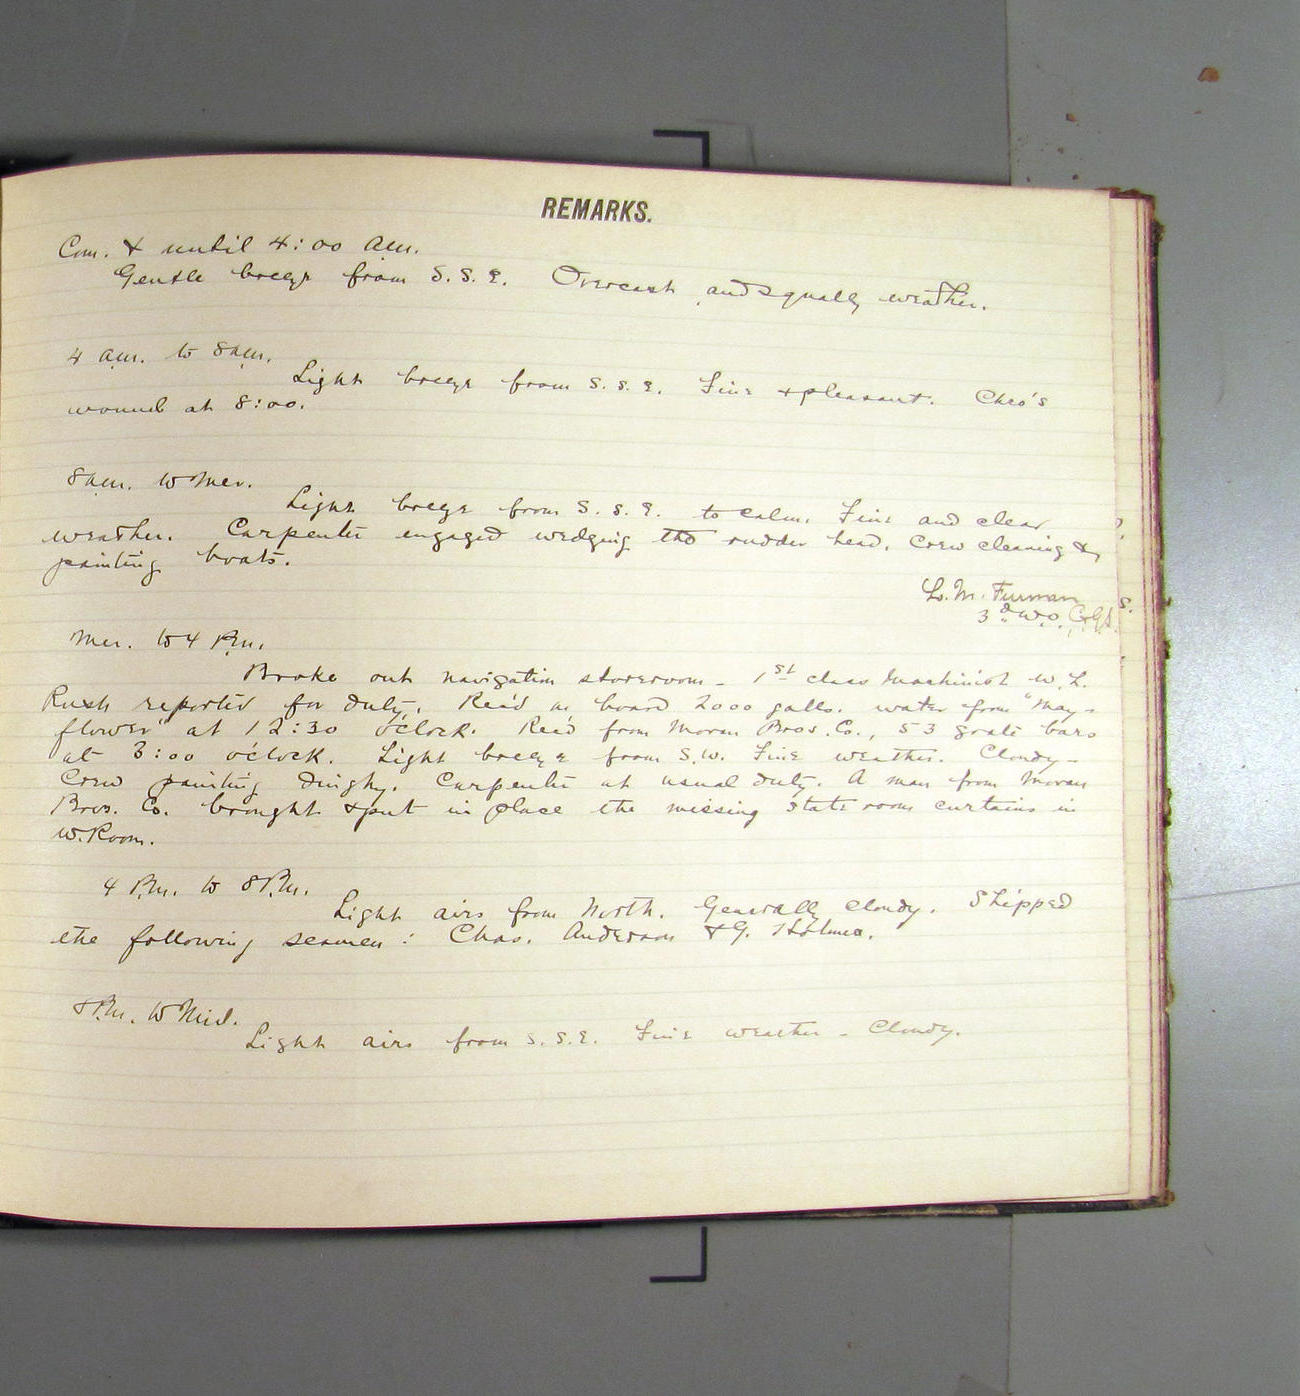 REMARKS.
Com. & until 4:00 a.m.
Gentle breeze from S.S.E. Overcast and squally weather.
4 a.m. to 8 a.m.
Light breeze from S.S.E. Fine & pleasant. Chro's
wound at 8:00.
8 a.m. to Mer.
Light breeze from S.S.E. to calm. Fine and clear
weather. Carpenter engaged wedging the rudder head. Crew cleaning &
painting boats.
L. M. Furman
3d. W.O.
Mer. to 4 P.m.
Broke out navigation storeroom - 1st class Machinist W. L.
Rush reported for duty. Rec'd on board 2000 galls. water from "May-
flower" at 12:30 o'clock. Rec'd from Moran Bros. Co., 53 grate bars
at 3:00 o'clock. Light breeze from S.W. Fine weather. Cloudy -
Crew painting dinghy. Carpenter at usual duty. A man from Moran
Bros. Co. brought & put in place the missing state room curtains in
W. Room.
4 P.m. to 8 P.m.
Light airs from North. Generally cloudy. Shipped
the following seamen: Chas. Anderson & G. Holmes.
8 P.m. to Mid.
Light airs from S.S.E. Fine weather - Cloudy.